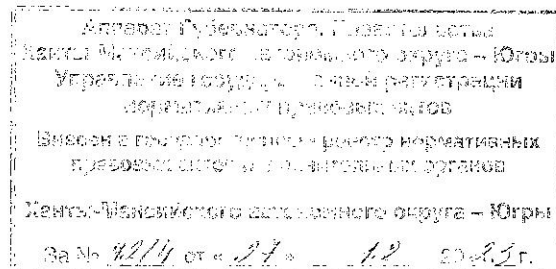 Аппарат Губернатора, Правительства
Ханты-Мансийского автономного округа – Югры
Управление государственной регистрации
нормативных правовых актов
Внесен в государственный реестр нормативных
правовых актов исполнительных органов
Ханты-Мансийского автономного округа – Югры
За № от « 27 » 12 20 г.